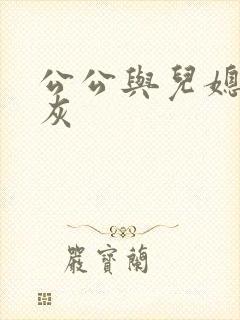 公公與兒媳
灰
嚴寶蘭